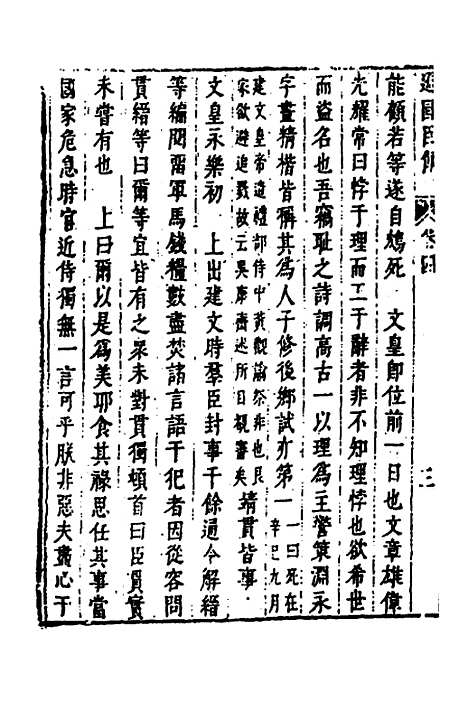 遜國臣傳 卷四 三
能顧若等遂自鴆死 文皇即位前一日也文章雄偉
光耀常曰悖于理而工于辭者非不知理悖也欲希世
而盜名也吾竊耻之詩調高古一以理爲主營策淵永
字畫精楷皆稱其爲人子修後鄉試亦第一 一曰死在辛巳九月
建文皇帝遣禮部侍中黃觀諭祭非也艮
家欲避追戮故云吳康齋述所目覩審矣 靖貫皆事
文皇永樂初 上出建文時羣臣封事千餘通令解縉
等編閱留軍馬錢糧數盡焚諸言語干犯者因從容問
貫縉等曰爾等宜皆有之衆未對貫獨頓首曰臣貫實
未嘗有也 上曰爾以是爲美耶食其祿思任其事當
國家危急時官近侍獨無一言可乎朕非惡夫盡心于